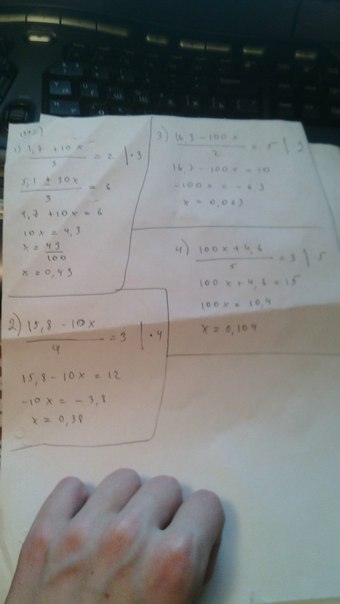 1) 1,7 + 10x / 3 = 2 | · 3
5,1 ± 30x / 3 = 6
1,7 + 10x = 6
10x = 4,3
x = 43 / 100
x = 0,43
2) 15,8 - 10x / 4 = 3 | · 4
15,8 - 10x = 12
-10x = - 3,8
x = 0,38
3) 16,3 - 100x / 2 = 5 |
16,3 - 100x = 10
-100x = - 6,3
x = 0,063
4) 100x + 4,6 / 5 = 3 | 5
100x + 4,6 = 15
100x = 10,4
x = 0,104